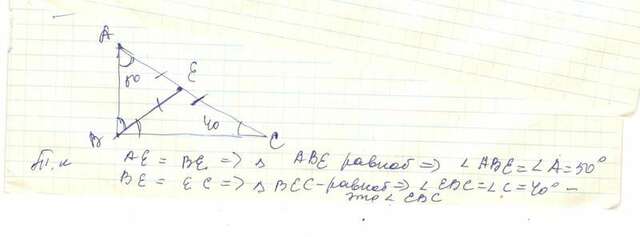 A
E
50
40
B
C
Т.к AE = BE => △ ABE равноб => ∠ ABE = ∠ A = 50°
BE = EC => △ BEC - равноб => ∠ EBC = ∠ C = 40° -
это ∠ EBC